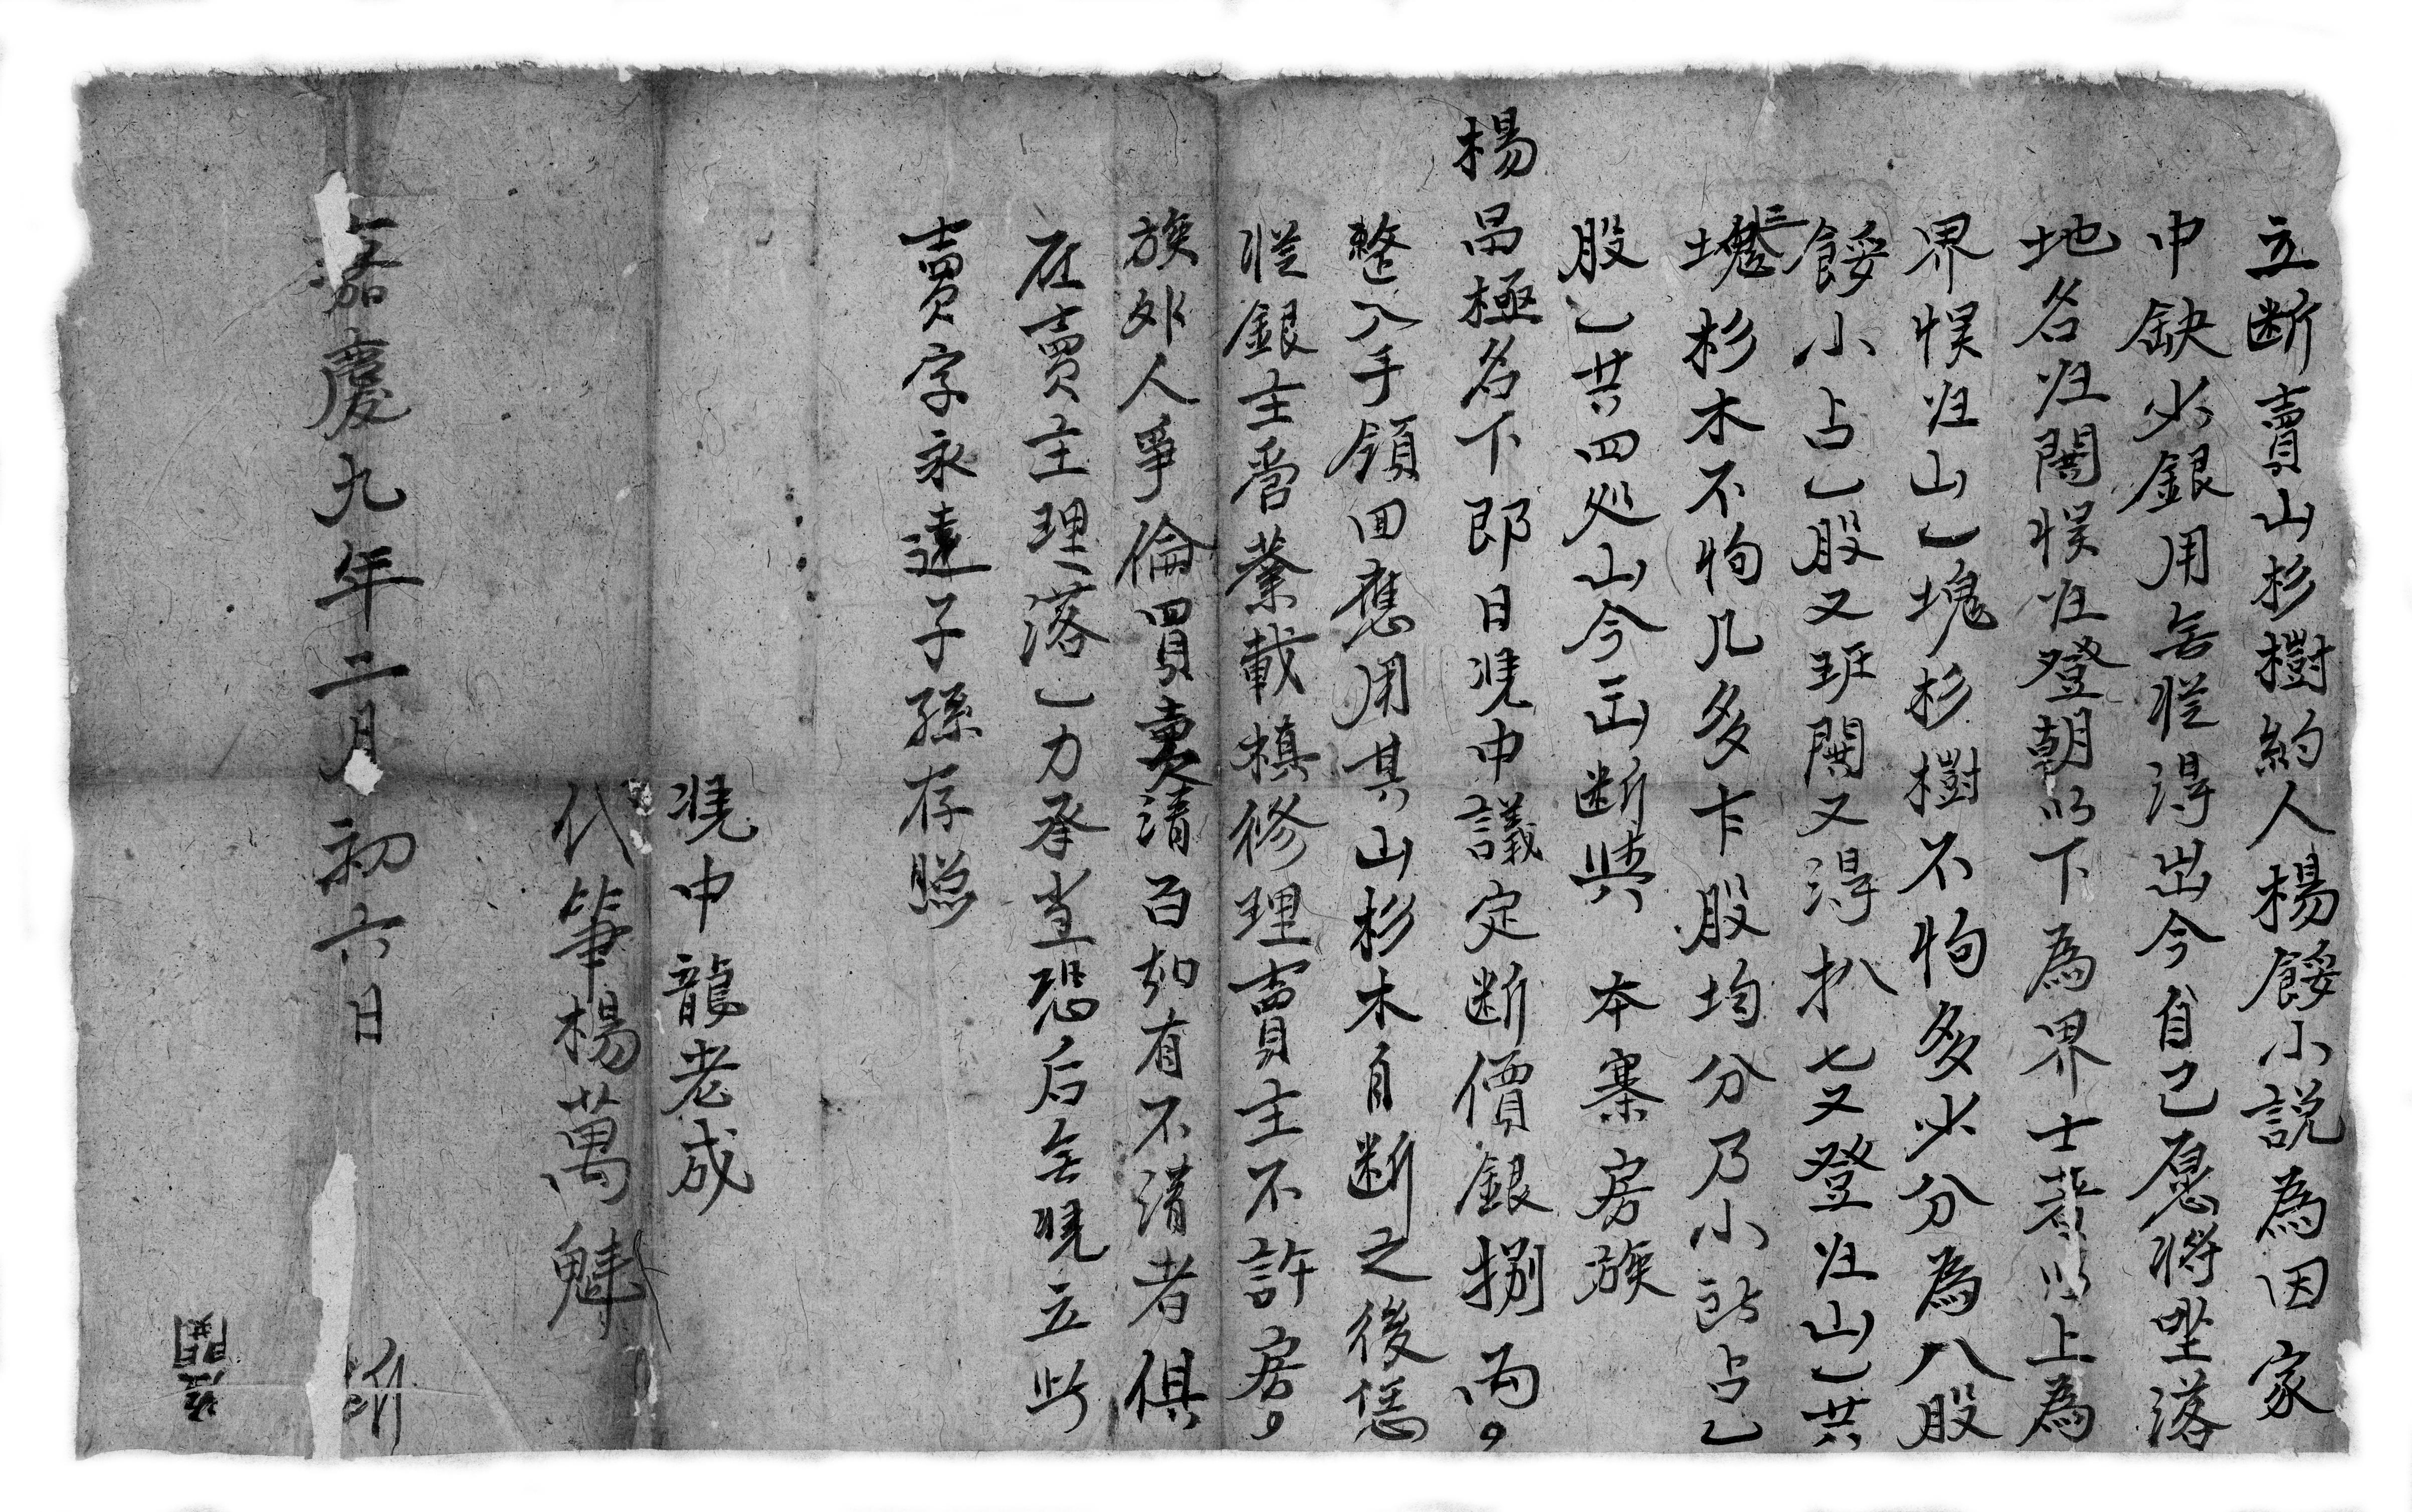 立断賣山杉樹約人楊餒小説為因家
中缺少銀用無從得出今自己愿将坐落
地名归閗悮归登朝以下為界士著以上為
界悮归山乚塊杉樹不拘多少分為八股
餒小占乚股又班閗又得扒七又登归山乚共
三塊杉木不拘几多卞股均分乃小占乙
股乚共四処山今出断與 本寨房族
楊昌極名下即日凴中議定断價銀捌両
整入手領回應用其山杉木自断之後恁
從銀主管業載槙修理賣主不許房
族外人爭倫買賣清白如有不清者俱
在賣主理落乚力承当恐后無凴立此
賣字永遠子孫存照
凴中龍老成
代筆楊萬魁
嘉慶九年二月初六日